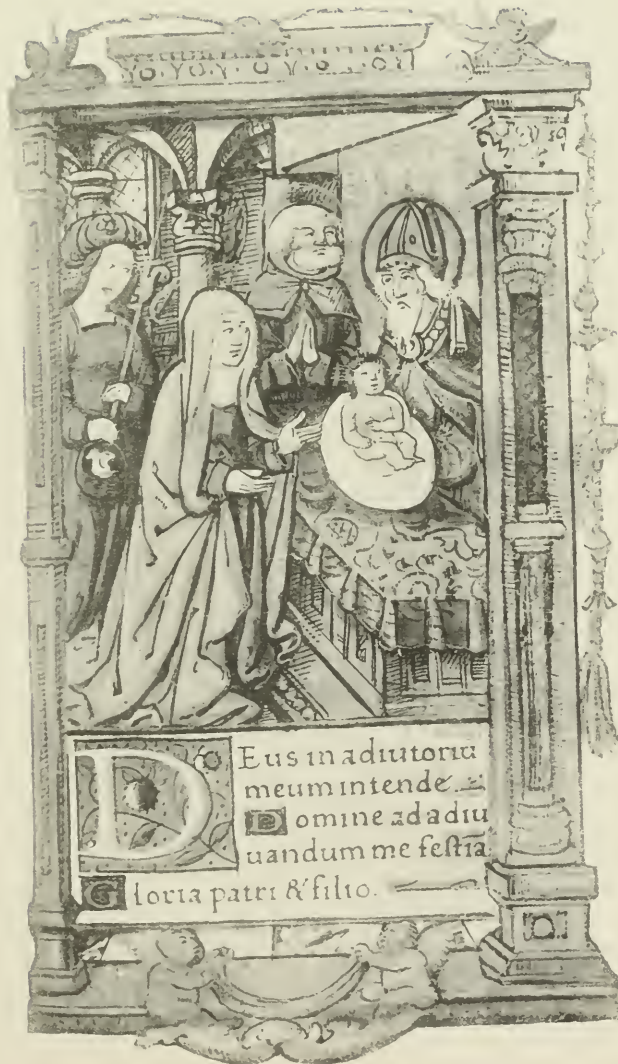 Deus in adiutoriū
meum intende.
Domine ad adiu
uandum me festīa
Gloria patri & filio.